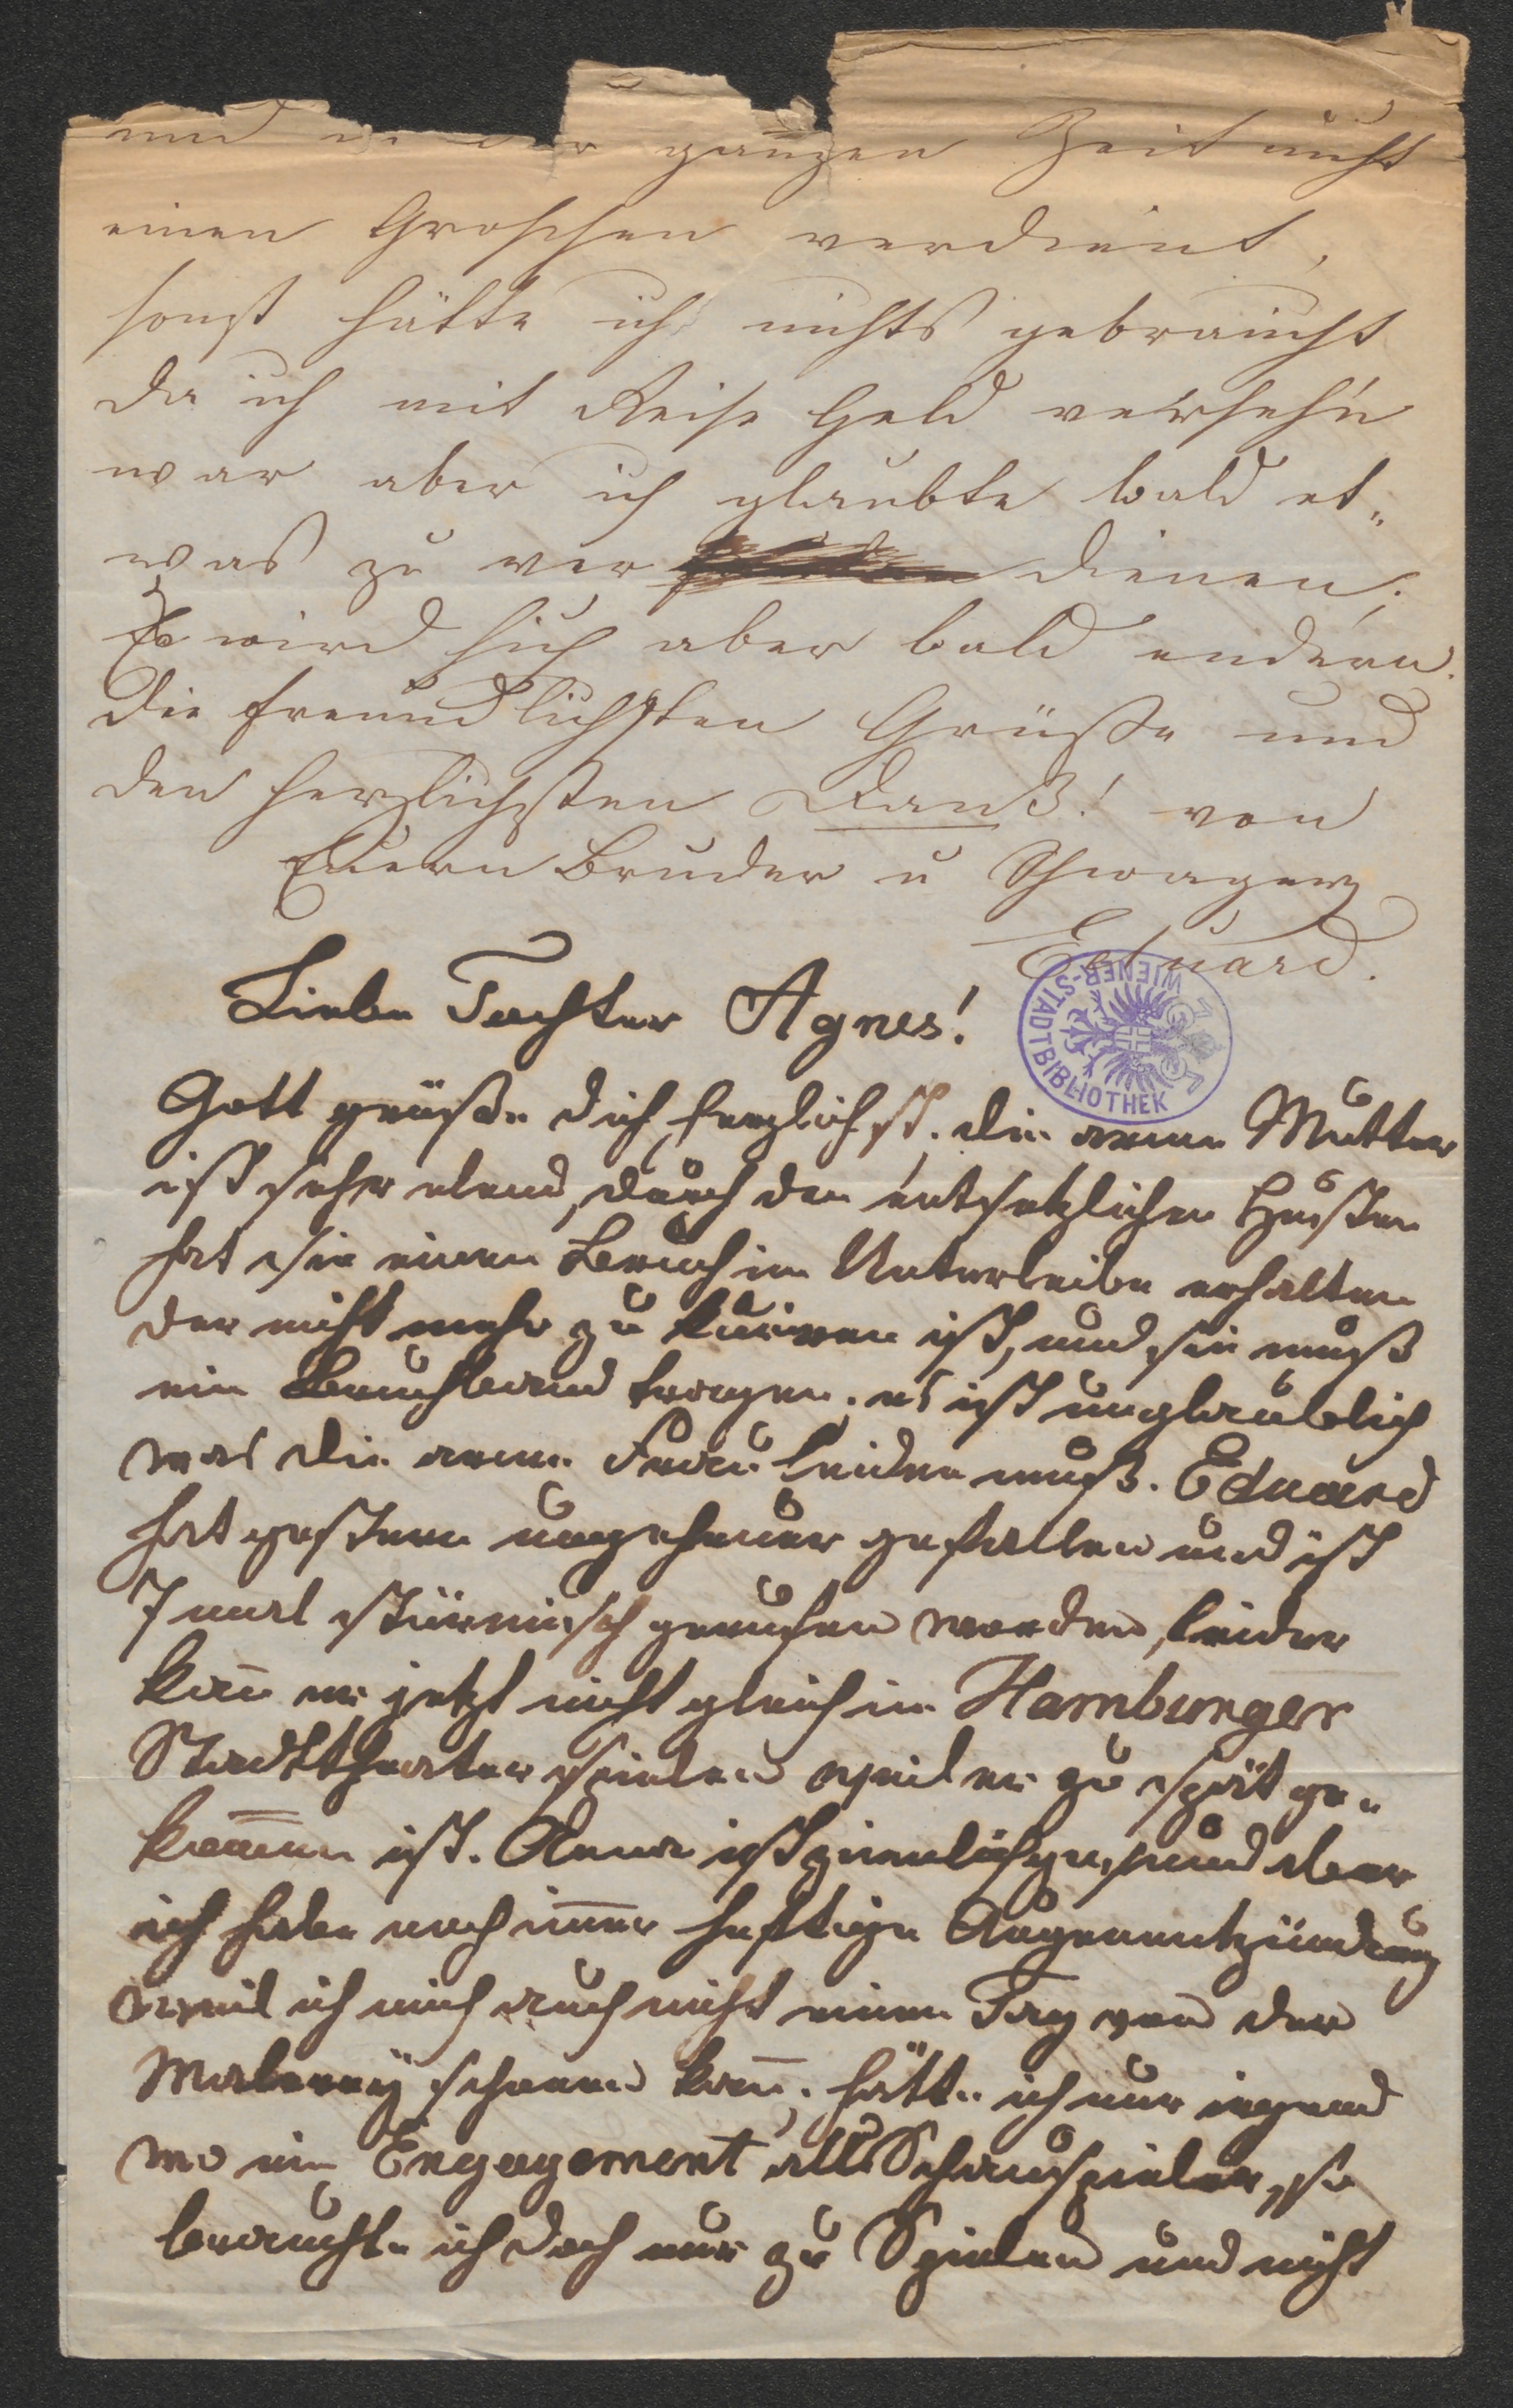 und in der ganzen Zeit nicht
einen Groschen verdient,
sonst hätte ich nichts gebraucht
da ich mit Reise Geld verseh'n
war aber ich glaubte bald et„
was zu ver dienen;
Es wird sich aber bald endern.
Die freundlichsten Grüße und
den herzlichsten Dank! von
Euern Bruder u Schwager
Eduard.
WIENER-STADTBIBLIOTHEK
Liebe Tochter Agnes!
Gott grüße dich herzlichst. die arme Mutter
ist sehr elend, durch den entsetzlichen Husten
hat sie einen Bruch im Unterleibe erhalten
der nicht mehr zu kuriren ist, und sie muß
ein Bruchband tragen. es ist unglaublich
was die arme Frau leiden muß. Eduard
hat gestern ungeheuer gefallen und ist
7 mal stürmisch gerufen worden, leider
kan̄ er jetzt nicht gleich im Hamburger
Stadttheater spielen weil er zu spät ge„
kom̄en ist. Anna ist ziemlich gesund aber
ich habe noch im̄er heftige Augenentzündung
weil ich mich auch nicht einen Tag von der
Malereÿ schonen kan̄. hätte ich nur irgend
wo ein Engagement als Schauspieler, so
brauchte ich doch nur zu Spielen und nicht